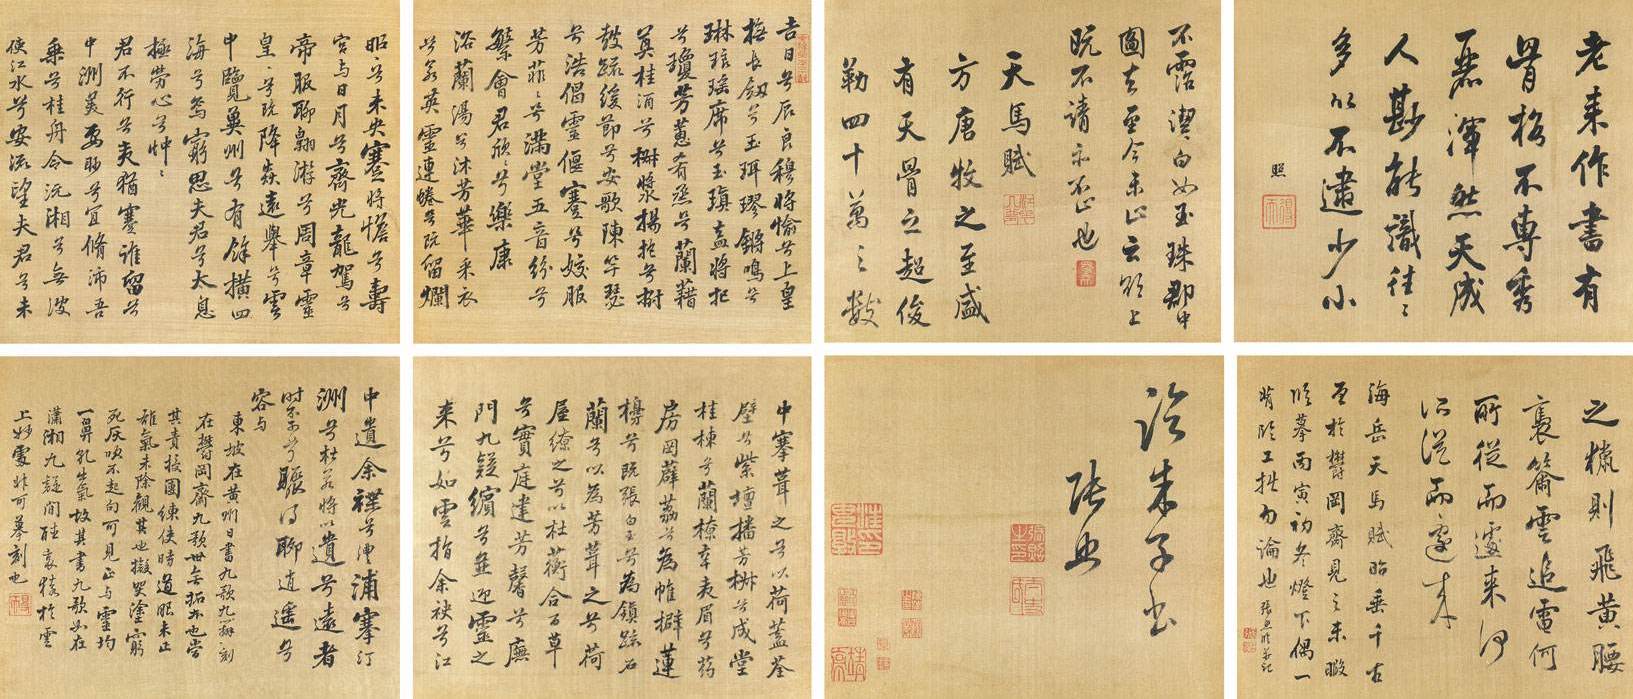 老来作書有
骨格不專秀
悪渾然天成
人尠能識往〻
多以不逮少小
照
不露潔白如玉珠郡中
圖書至今未止云頭上
玩不請示不止也
天馬賦
方唐牧之至盛
有天骨之超俊
勒四十萬之數
吉日兮辰良穆將愉兮上皇
撫長劔兮玉珥璆鏘鳴兮
琳琅瑤席兮玉瑱盍將把
兮瓊芳蕙肴烝兮蘭藉
奠桂酒兮椒漿揚枹兮拊
鼓疏緩節兮安歌陳竽瑟
兮浩倡靈偃蹇兮姣服
芳菲〻兮滿堂五音紛兮
繁會君欣〻兮樂康
浴蘭湯兮沐芳華采衣
兮若英靈連蜷兮既留爛
昭〻兮未央蹇將憺兮壽
宮與日月兮齊光龍駕兮
帝服聊翱游兮周章靈
皇〻兮既降猋遠舉兮雲
中覽冀州兮有餘橫四
海兮焉窮思夫君兮太息
極勞心兮忡〻
君不行兮夷猶蹇誰留兮
中洲美要眇兮宜脩沛吾
乗兮桂舟令沅湘兮無波
使江水兮安流望夫君兮未
之標則飛黄腰
裹籋雲追電何
所從而遽来
海岳天馬賦昭垂千古
至於欝岡齋見之未暇
臨摹丙寅初冬燈下偶一
背臨工拙勿論也張照并記
臨朱子書
張照
中搴葺之兮以荷蓋荃
壁兮紫壇播芳椒兮成堂
桂棟兮蘭橑辛夷眉兮葯
房罔薜荔兮為帷擗蓮
櫋兮既張白玉兮為鎮疏石
蘭兮以為芳葺之兮荷
屋繚之兮以杜蘅合百草
兮實庭建芳馨兮廡
門九疑繽兮並迎靈之
来兮如雲指余袂兮江
中遺余褋兮澧浦搴汀
洲兮杜若將以遺兮遠者
時不兮驟得聊逍遥兮
容与
東坡在黄州日書九歌九辯刻
在欝岡齋九歌世無拓本也嘗
其責授團練使時道眼未正
雄氣未除觀其也擬哭塗窮
死灰吹不起句可見正與靈均
一鼻孔出氣故其書九歌如在
瀟湘九疑間酸哀猿於雲
上妙處非可摹刻也